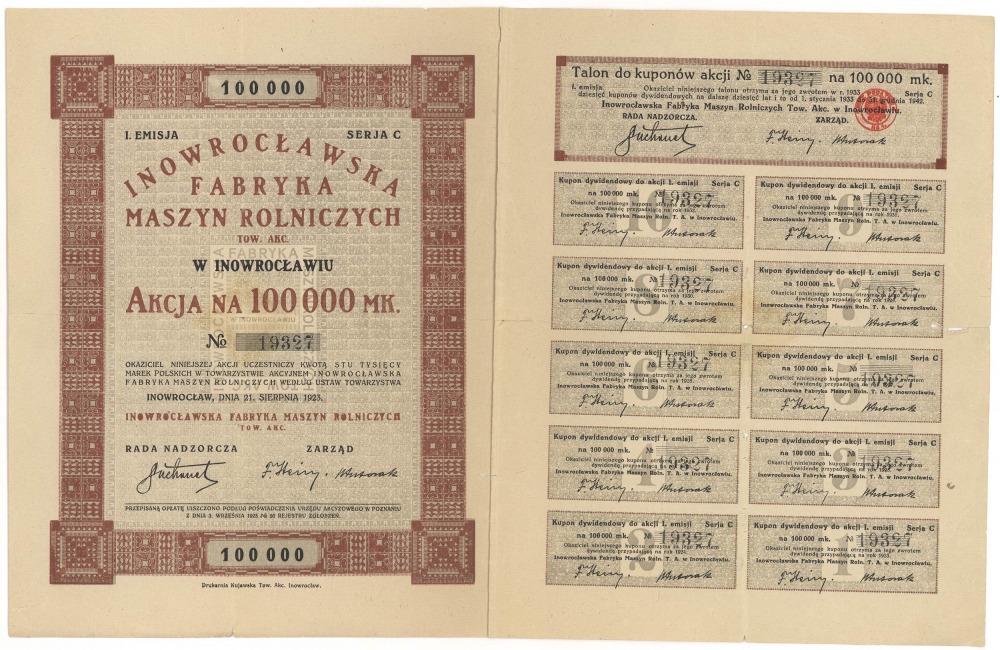 100 000
I. EMISJA SERJA C
INOWROCŁAWSKA
FABRYKA
MASZYN ROLNICZYCH
TOW. AKC.
W INOWROCŁAWIU
AKCJA NA 100 000 MK.
№ 19327
OKAZICIEL NINIEJSZEJ AKCJI UCZESTNICZY KWOTĄ STU TYSIĘCY
MAREK POLSKICH W TOWARZYSTWIE AKCYJNEM INOWROCŁAWSKA
FABRYKA MASZYN ROLNICZYCH WEDŁUG USTAW TOWARZYSTWA
INOWROCŁAW, DNIA 21. SIERPNIA 1923.
INOWROCŁAWSKA FABRYKA MASZYN ROLNICZYCH
TOW. AKC.
RADA NADZORCZA ZARZĄD
PRZEPISANĄ OPŁATĘ UISZCZONO PODŁUG POŚWIADCZENIA URZĘDU AKCYZOWEGO W POZNANIU
Z DNIA 3. WRZEŚNIA 1923 № 50 REJESTRU ZGŁOSZEŃ.
100 000
Drukarnia Kujawska Tow. Akc. Inowrocław.
Talon do kuponów akcji № 19327 na 100 000 mk.
I. emisja Okaziciel niniejszego talonu otrzyma za jego zwrotem w r. 1933 Serja C
dziesięć kuponów dywidendowych na dalsze dziesięć lat i to od 1. stycznia 1933 do 31. grudnia 1942.
Inowrocławska Fabryka Maszyn Rolniczych Tow. Akc. w Inowrocławiu.
RADA NADZORCZA. ZARZĄD.
Kupon dywidendowy do akcji I. emisji Serja C
na 100 000 mk. № 19327
Okaziciel niniejszego kuponu otrzyma za jego zwrotem
dywidendę przypadającą na rok 1932.
Inowrocławska Fabryka Maszyn Roln. T. A. w Inowrocławiu.
10
Kupon dywidendowy do akcji I. emisji Serja C
na 100 000 mk. № 19327
Okaziciel niniejszego kuponu otrzyma za jego zwrotem
dywidendę przypadającą na rok 1931.
Inowrocławska Fabryka Maszyn Roln. T. A. w Inowrocławiu.
9
Kupon dywidendowy do akcji I. emisji Serja C
na 100 000 mk. № 19327
Okaziciel niniejszego kuponu otrzyma za jego zwrotem
dywidendę przypadającą na rok 1930.
Inowrocławska Fabryka Maszyn Roln. T. A. w Inowrocławiu.
8
Kupon dywidendowy do akcji I. emisji Serja C
na 100 000 mk. № 19327
Okaziciel niniejszego kuponu otrzyma za jego zwrotem
dywidendę przypadającą na rok
Inowrocławska Fabryka Maszyn Roln. T. A. w Inowrocławiu.
7
Kupon dywidendowy do akcji I. emisji Serja C
na 100 000 mk. № 19327
Okaziciel niniejszego kuponu otrzyma za jego zwrotem
dywidendę przypadającą na rok 1928.
Inowrocławska Fabryka Maszyn Roln. T. A. w Inowrocławiu.
6
Kupon dywidendowy do akcji I. emisji Serja C
na 100 000 mk. № 19327
Okaziciel niniejszego kuponu otrzyma za jego zwrotem
dywidendę przypadającą na rok
Inowrocławska Fabryka Maszyn Roln. T. A. w Inowrocławiu.
5
Kupon dywidendowy do akcji I. emisji Serja C
na 100 000 mk. № 19327
Okaziciel niniejszego kuponu otrzyma za jego zwrotem
dywidendę przypadającą na rok
Inowrocławska Fabryka Maszyn Roln. T. A. w Inowrocławiu.
4
Kupon dywidendowy do akcji I. emisji Serja C
na 100 000 mk. № 19327
Okaziciel niniejszego kuponu otrzyma za jego zwrotem
dywidendę przypadającą na rok
Inowrocławska Fabryka Maszyn Roln. T. A. w Inowrocławiu.
3
Kupon dywidendowy do akcji I. emisji Serja C
na 100 000 mk. № 19327
Okaziciel niniejszego kuponu otrzyma za jego zwrotem
dywidendę przypadającą na rok 1924.
Inowrocławska Fabryka Maszyn Roln. T. A. w Inowrocławiu.
Kupon dywidendowy do akcji I. emisji Serja C
na 100 000 mk. № 19327
Okaziciel niniejszego kuponu otrzyma za jego zwrotem
dywidendę przypadającą na rok 1923.
Inowrocławska Fabryka Maszyn Roln. T. A. w Inowrocławiu.
1